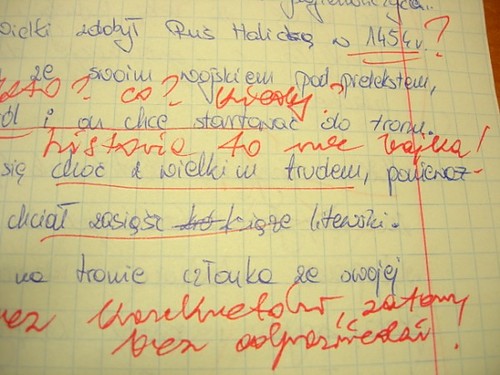 ielki zdobył Ruś Halicką w 1454r. ?
ze swoim wojskiem pod pretekstem,
kto? co? kiedy?
ól i on chcę startować do tronu.
historia to nie bajka!
się choć z wielkim trudem, ponieważ-
chciał zasiąść książe litewski.
na tronie członka ze swojej
ez konkretów,
bez !